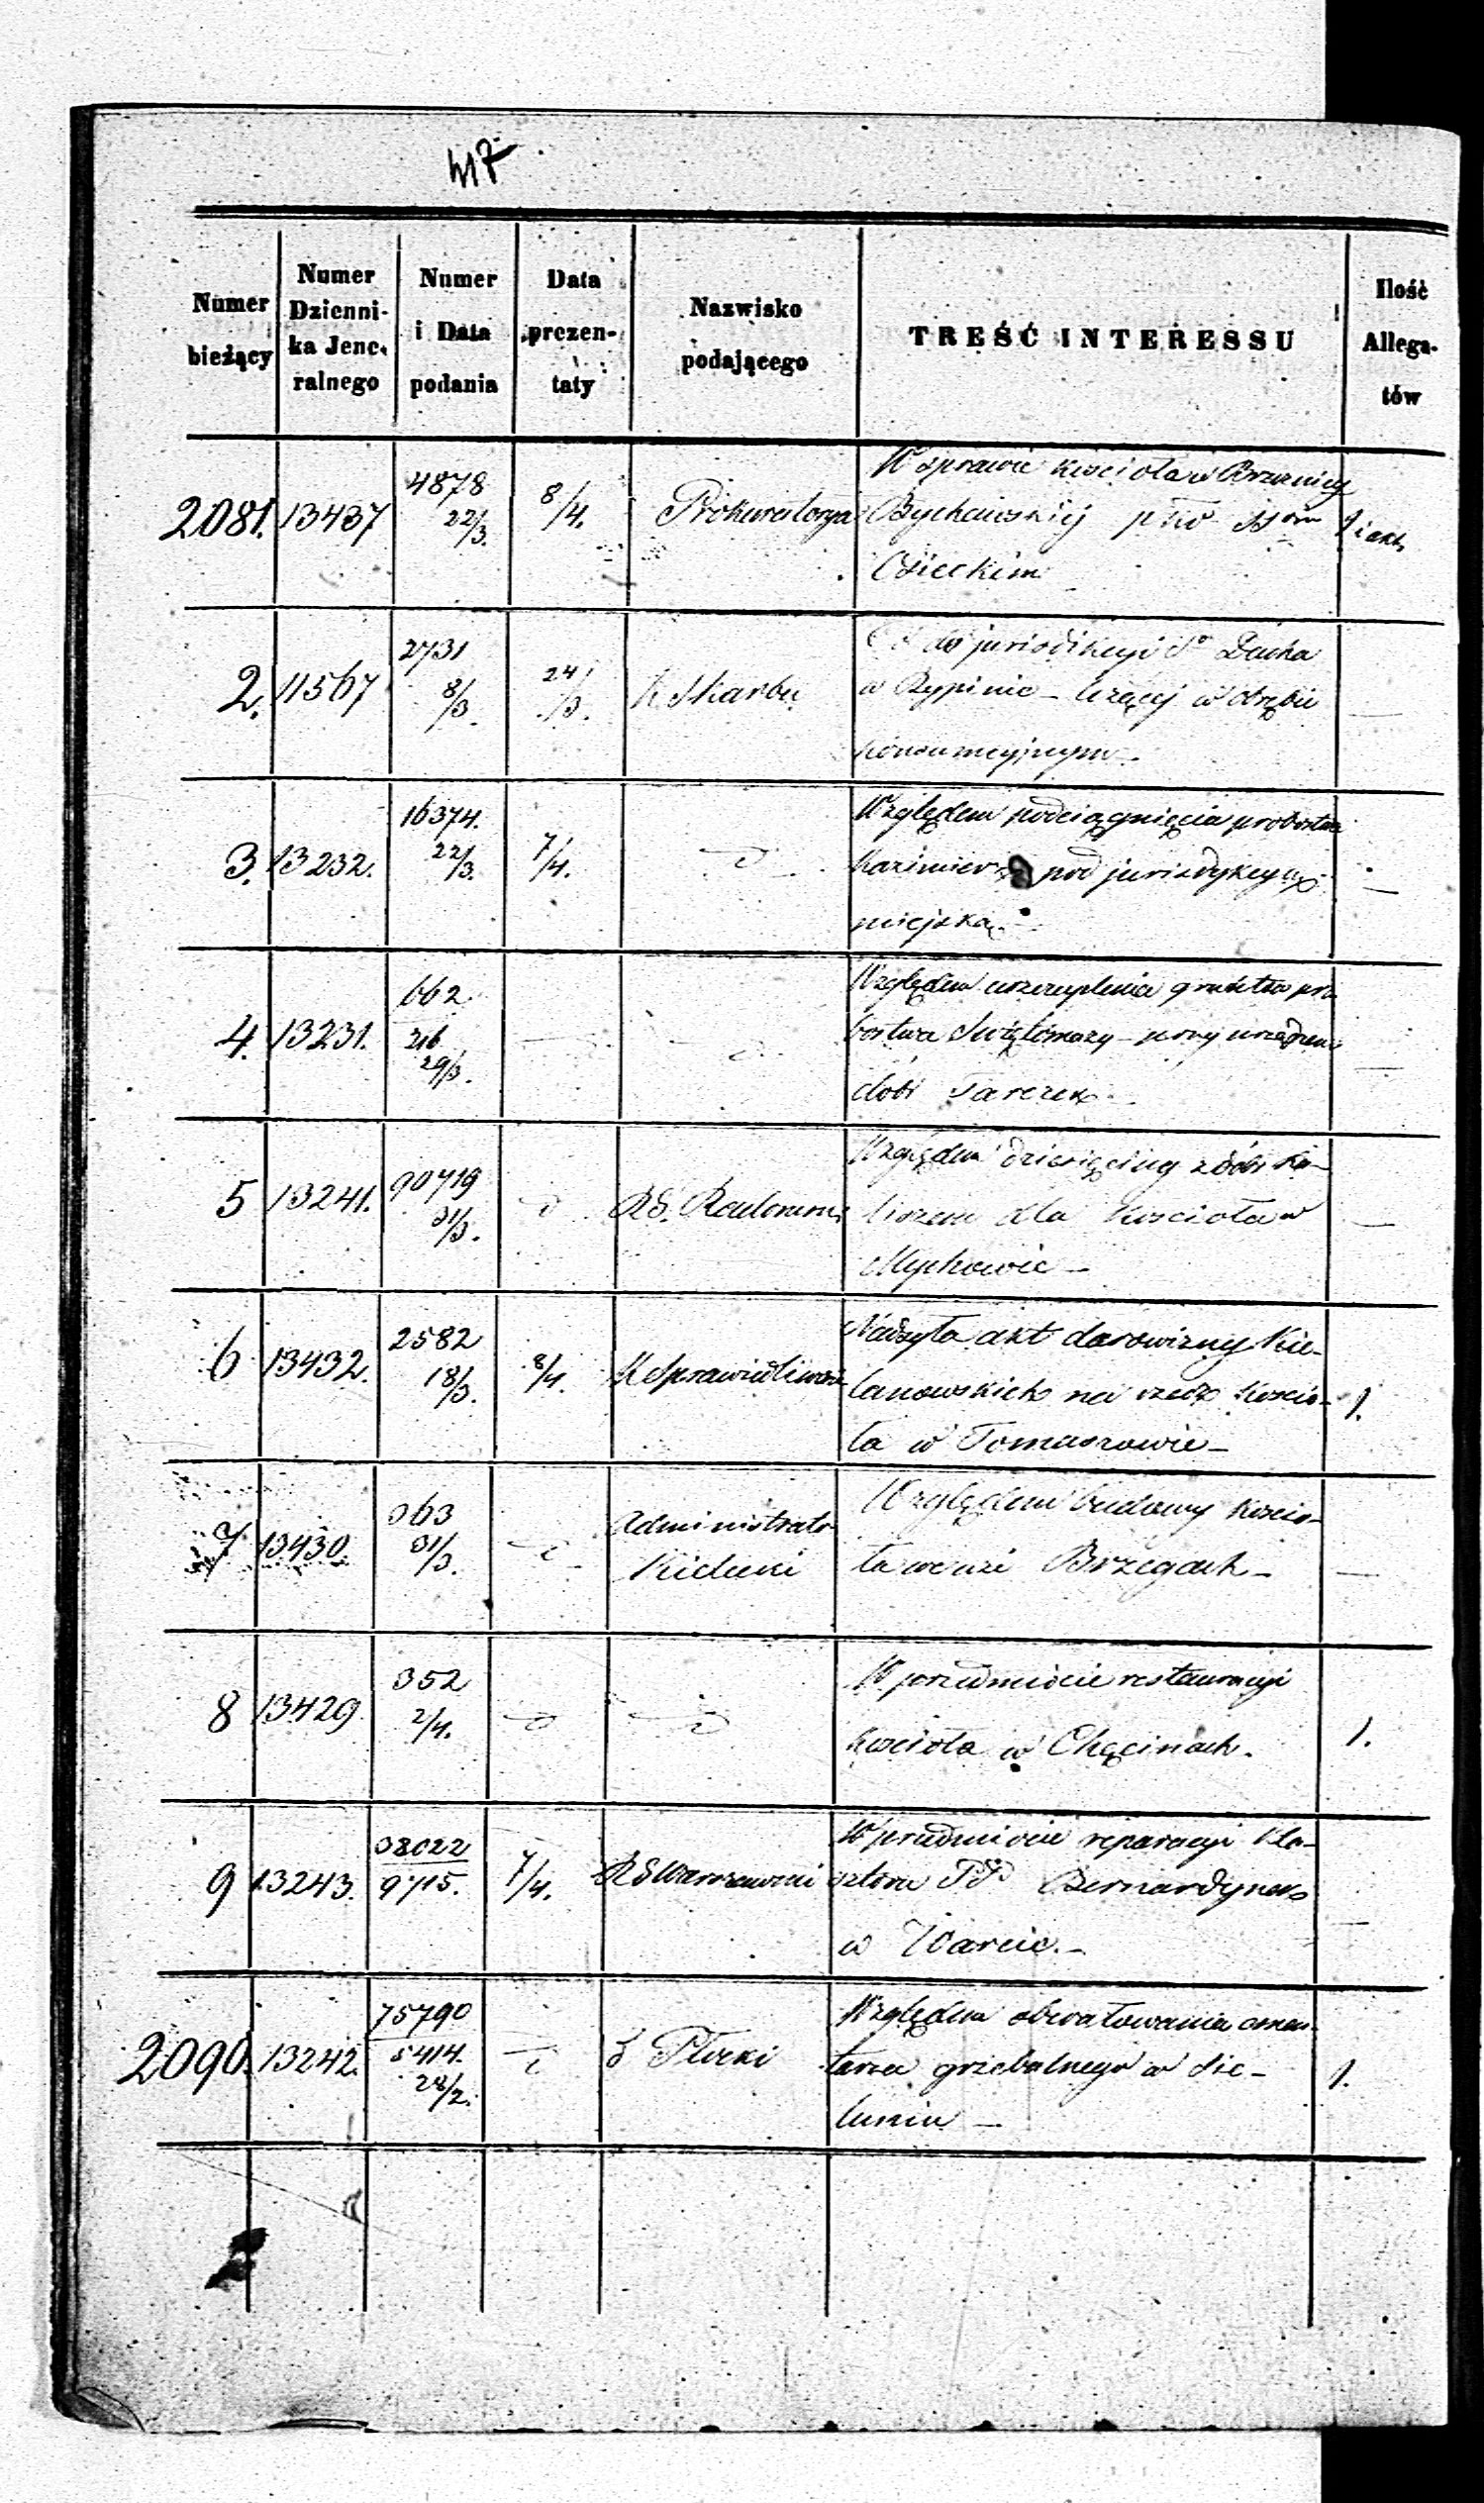 417
Numer bieżący | Numer Dzienni-ka Jene-ralnego | Numer i Data podania | Data prezen-taty | Nazwisko podającego | TREŚĆ INTERESSU | Ilość Allega-tów
2081. | 13437 | 4878 22/3. | 8/4. | Prokuratorya | W sprawie kościoła w Brzeznicy
Bychawskiej pko
Osieckim
2. | 11567 | 2731 8/3. | 24/3. | K Skarbu | do jurisdikcyi Sº Ducha
w Rypinie – leżącej w obrębie
konsumcyjnym –
3. | 13232. | 16374. 22/3. | 7/4. | Względem podciągnięcia probostwa
Kazimierz pod jurisdykcyą
miejską. –
4. | 13231. | 662 216 29/3. | – | Względem uszczuplenia gruntów pro
bostwa Swiętomarz – przy urządzeniu
dóbr Tarczek –
5 | 13241. | 90719 31/3. | RG. Radomski | Względem dziesięciny z dóbr
dla kościoła w
Mychowie –
6 | 13432. | 2582 18/3. | 8/4. | K Sprawiedliwości | Nadsyła akt darowizny Kie-
lanowskich na rzecz kościo-
ła w Tomaszowie – | 1.
7 | 13430. | 363 31/3. | Administrator
Kielecki | Względem budowy kościo-
ła we wsi Brzegach –
8 | 13429 | 352 2/4. | W przedmiocie restauracyi
kościoła w Chęcinach. | 1.
9 | 13243. | 38022 9715. | 7/4. | RG Warszawski | W przedmiocie reparacyi kla-
sztoru PP Bernardynek
w Warcie. –
2090. | 13242. | 75790 5414. 28/2. | Płocki | Względem obwałowania cmen-
tarza grzebalnego w Sie-
luniu – | 1.